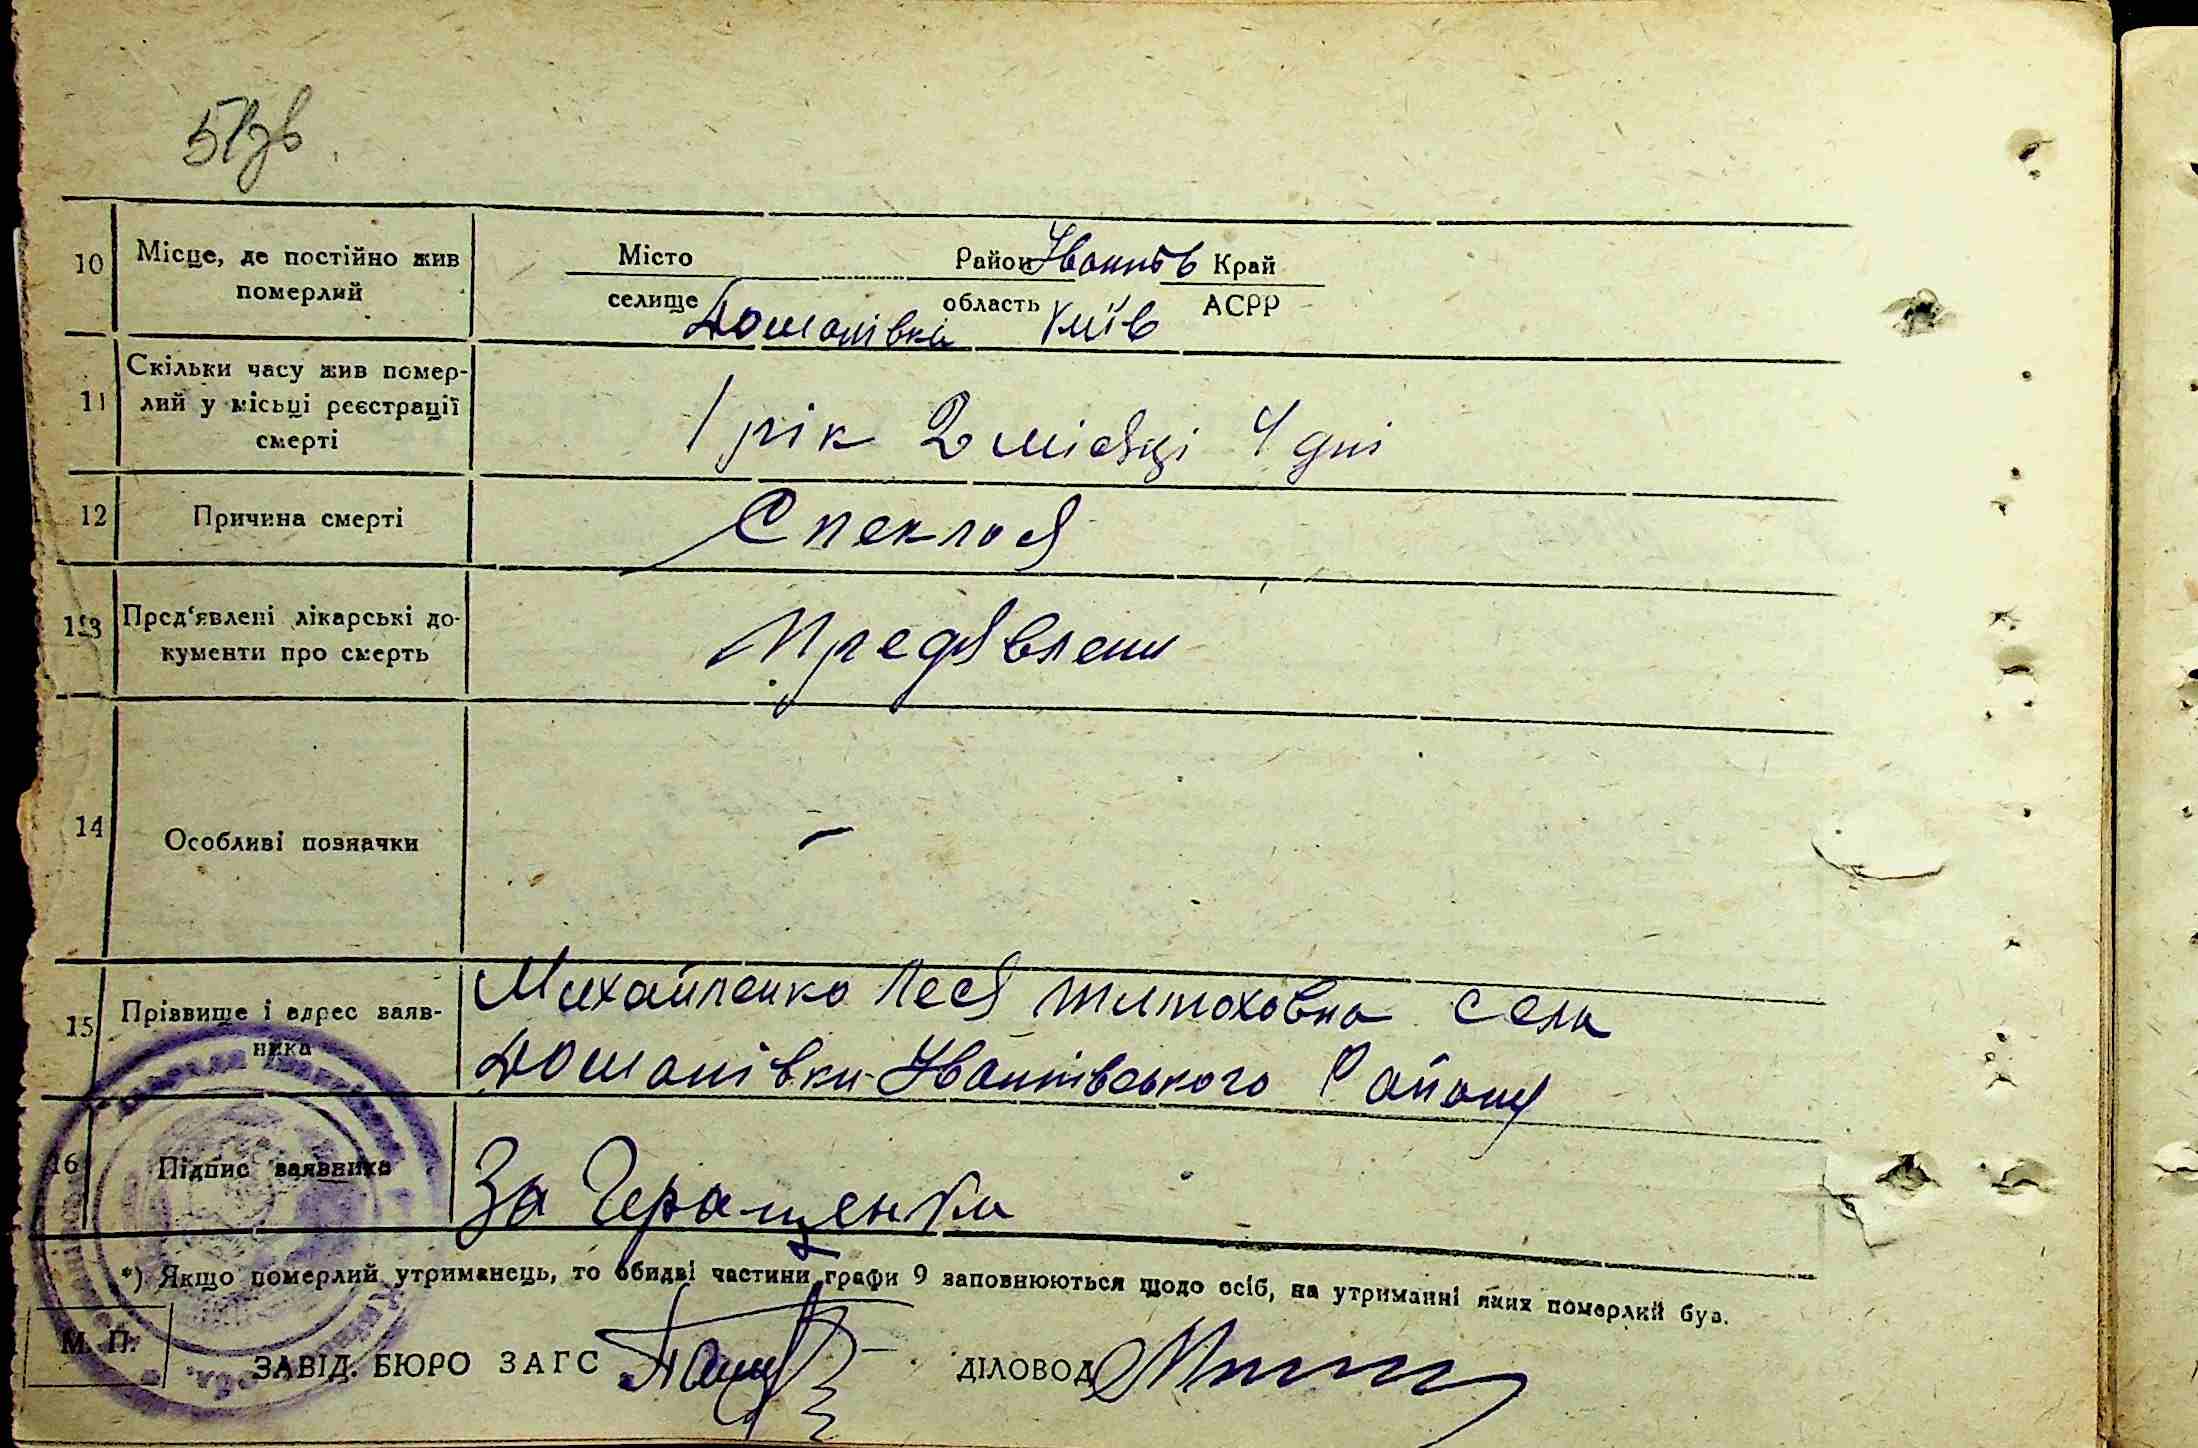 51зв
10 Місце, де постійно жив Місто Район Іванків Край
померлий селище Домонівка область Київ АСРР
Скільки часу жив помер-
11 лий у місьці реєстрації 1 рік 2 місяці 4 дні
смерті
12 Причина смерті Спеклася
13 Пред‘явлені лікарські до- Предявлени
кументи про смерть
14 Особливі позначки –
15 Прізвище і адрес заяв- Михайленко Леся Тимоховна села
ника Домонівки Іванківського Району
16 Підпис заявника За Геращенка
*) Якщо померлий утриманець, то обидві частини графи 9 заповнюються щодо осіб, на утриманні яких померлий був.
М. П. ЗАВІД. БЮРО ЗАГС ДІЛОВОД